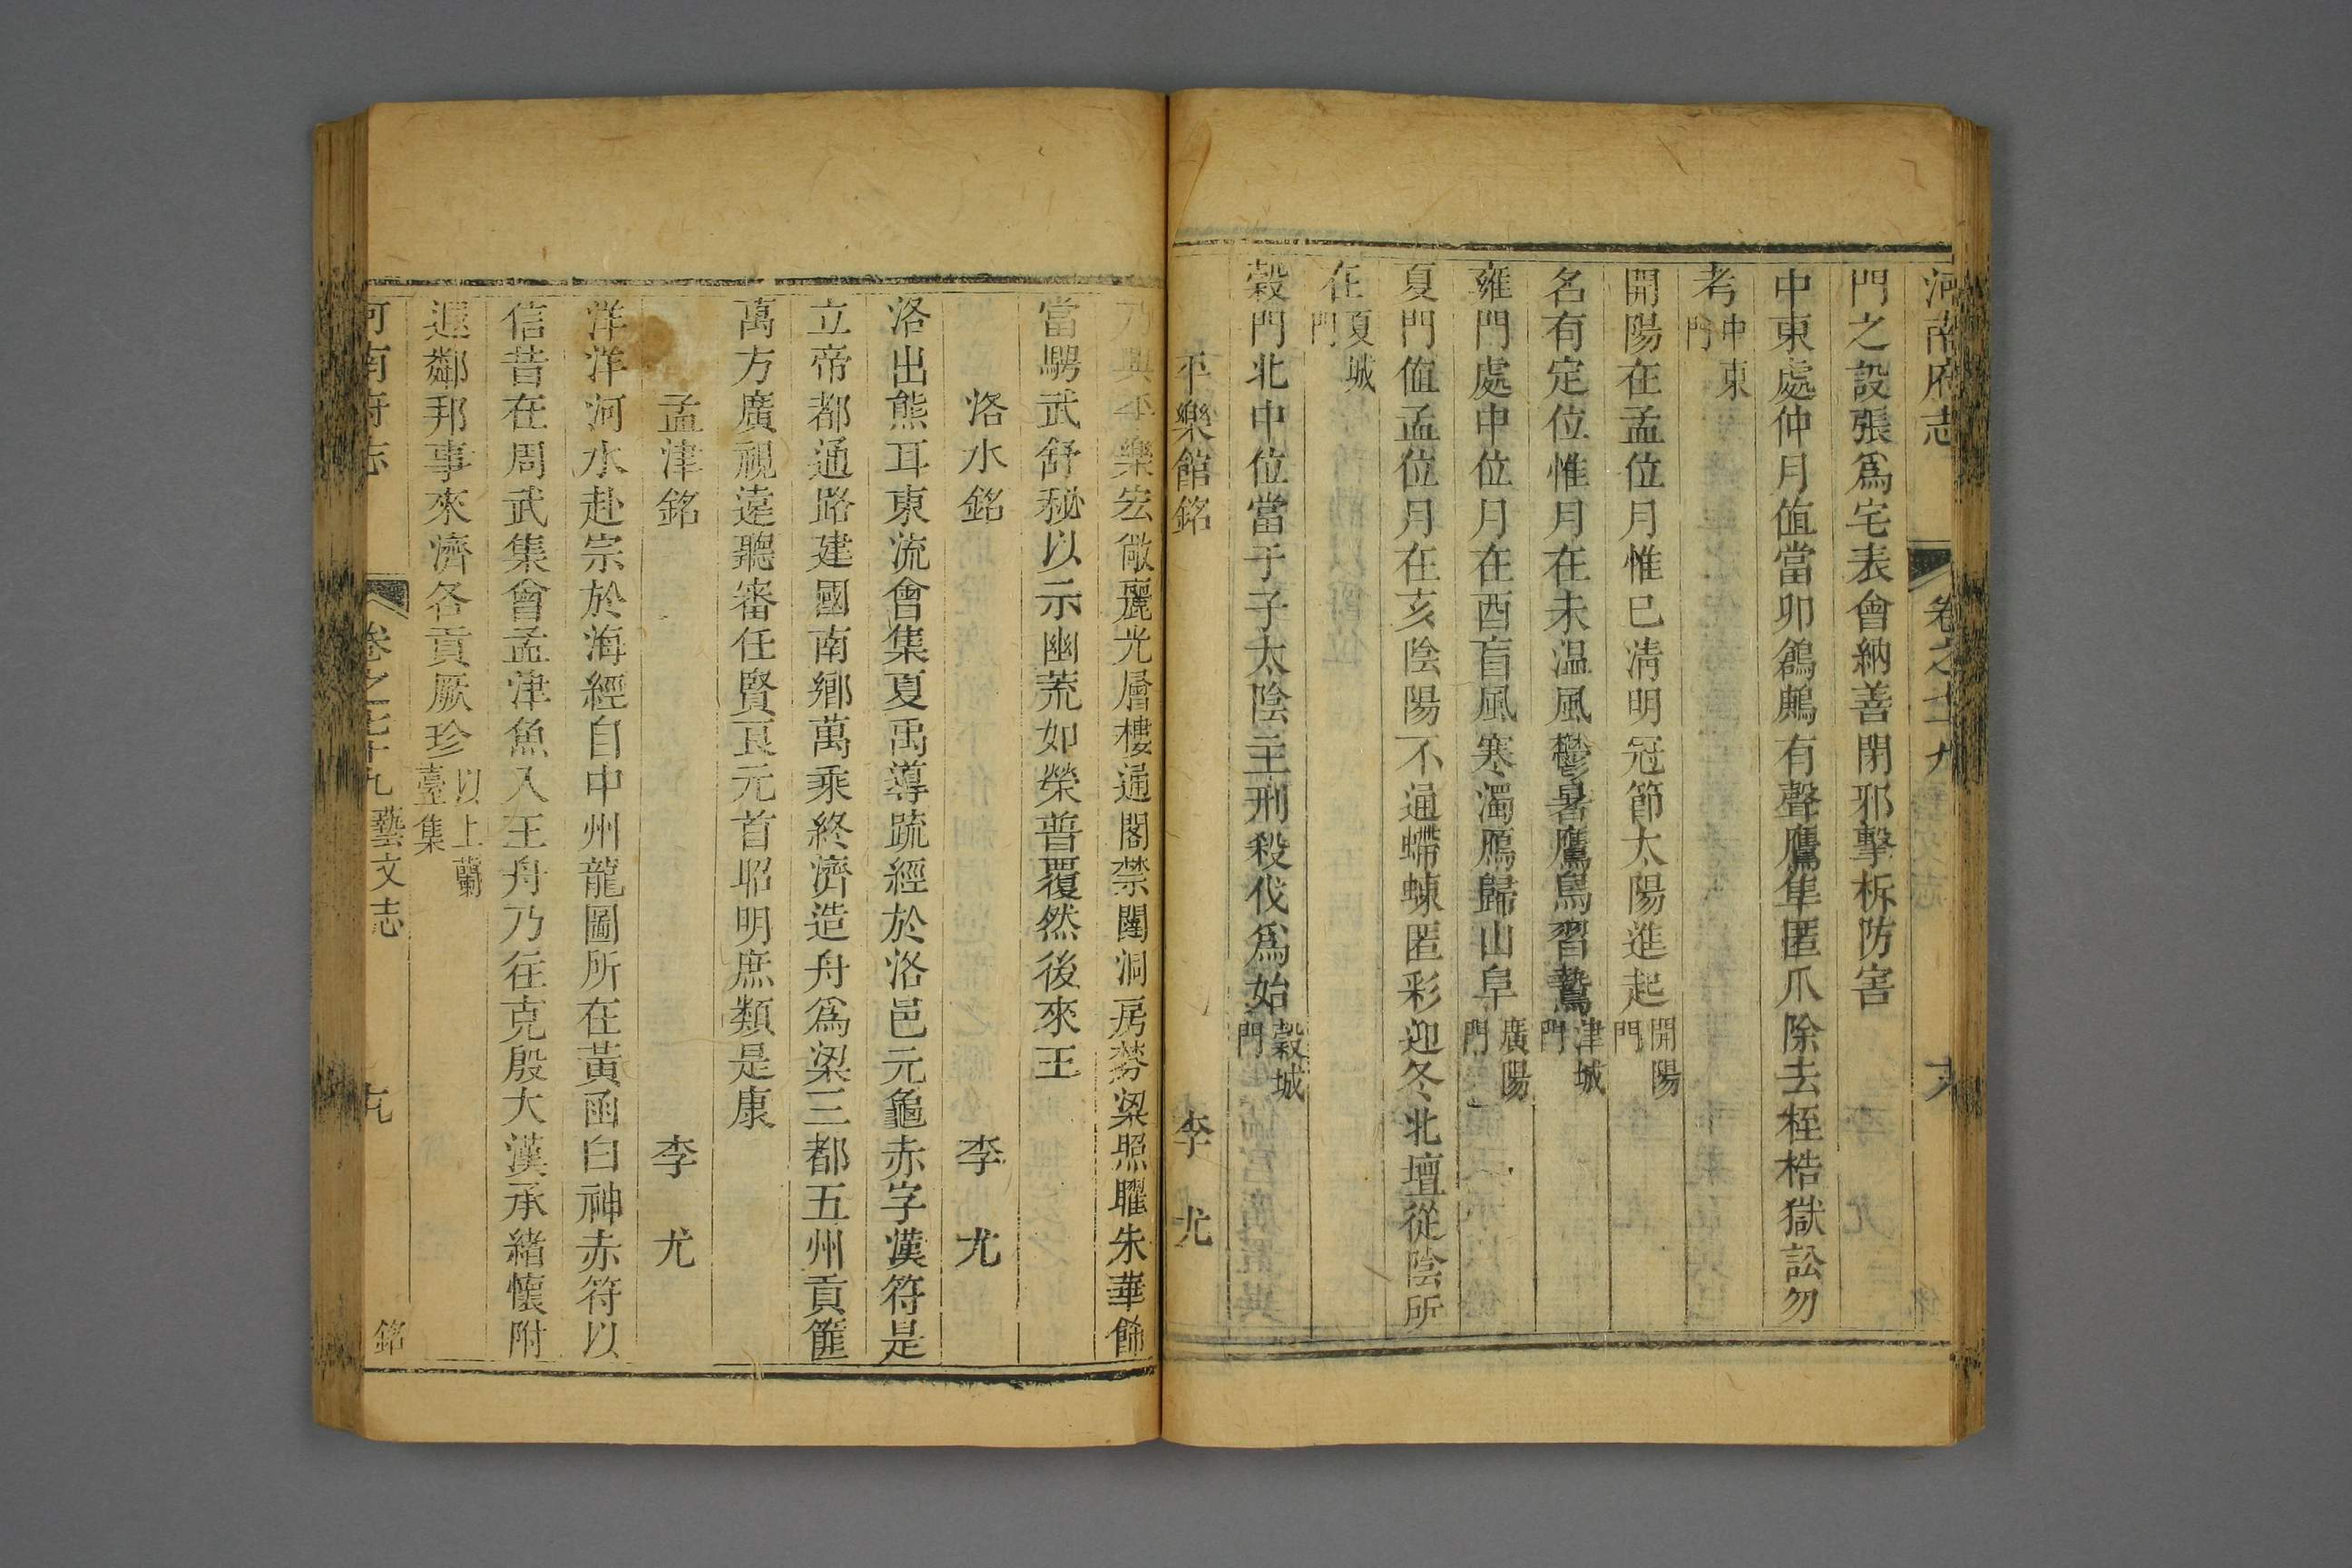 河南府志 卷之七十九 十八
門之設張爲宅表會納善閉邪擊柝防害
中東處仲月值當卯鶬鷓有聲鷹隼匿爪除去桎梏獄訟勿
考中東門
開陽在孟位月惟巳清明冠節太陽進起開陽門
名有定位惟月在未温風鬱暑鷹鳥習鷙津城門
雍門處中位月在酉盲風寒濁鴈歸山阜廣陽門
夏門值孟位月在亥陰陽不通螮蝀匿彩迎冬北壇從陰所
在夏城門
榖門北中位當于子太陰主刑殺伐爲始榖城門
平樂館銘 李尤
乃興平樂宏敞麗光層樓通閣禁闈洞房棼梁照曜朱華飾
當騁武舒秘以示幽荒如榮普覆然後來王
洛水銘 李尤
洛出熊耳東流會集夏禹導疏經於洛邑元龜赤字漢符是
立帝都通路建國南鄉萬乘終濟造舟爲梁三都五州貢篚
萬方廣視遠聽審任賢良元首昭明庶類是康
孟津銘 李尤
洋洋河水赴宗於海經自中州龍圖所在黃函白神赤符以
信昔在周武集會孟津魚入王舟乃往克殷大漢承緒懷附
遐鄰邦事來濟各貢厥珍以上蘭臺集
河南府志 卷之七十九 藝文志 十九 銘